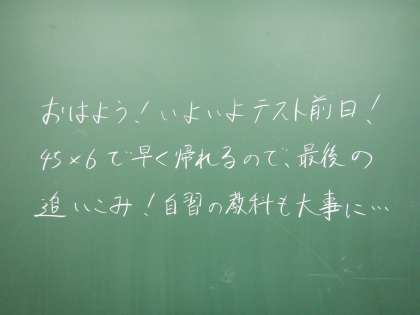 おはよう！いよいよテスト前日！
45×6で早く帰れるので、最後の
追いこみ！自習の教科も大事に…